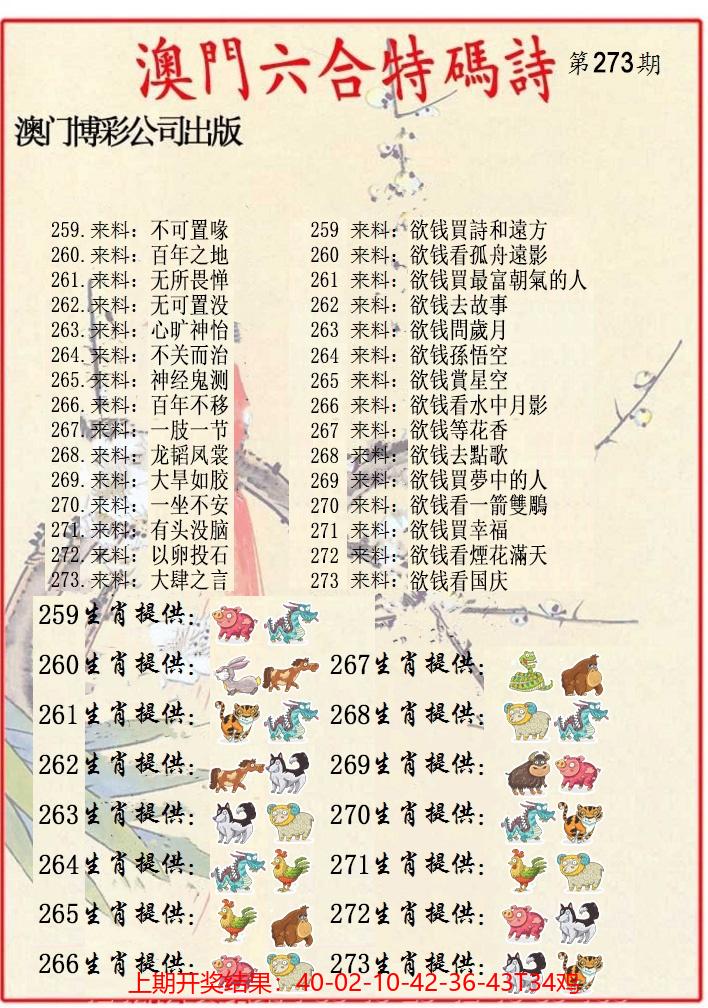 澳門六合特碼詩 第273期
澳门博彩公司出版
259.来料：不可置喙
260.来料：百年之地
261.来料：无所畏惮
262.来料：无可置没
263.来料：心旷神怡
264.来料：不关而治
265.来料：神经鬼测
266.来料：百年不移
267.来料：一肢一节
268.来料：龙韬凤裳
269.来料：大旱如胶
270.来料：一坐不安
271.来料：有头没脑
272.来料：以卵投石
273.来料：大肆之言
259 来料：欲钱買詩和遠方
260 来料：欲钱看孤舟遠影
261 来料：欲钱買最富朝氣的人
262 来料：欲钱去故事
263 来料：欲钱問歲月
264 来料：欲钱孫悟空
265 来料：欲钱賞星空
266 来料：欲钱看水中月影
267 来料：欲钱等花香
268 来料：欲钱去點歌
269 来料：欲钱買夢中的人
270 来料：欲钱看一箭雙鵰
271 来料：欲钱買幸福
272 来料：欲钱看煙花滿天
273 来料：欲钱看国庆
259生肖提供：
260生肖提供：
261生肖提供：
262生肖提供：
263生肖提供：
264生肖提供：
265生肖提供：
266生肖提供：
267生肖提供：
268生肖提供：
269生肖提供：
270生肖提供：
271生肖提供：
272生肖提供：
273生肖提供：
上期开奖结果：40-02-10-42-36-43T34鸡